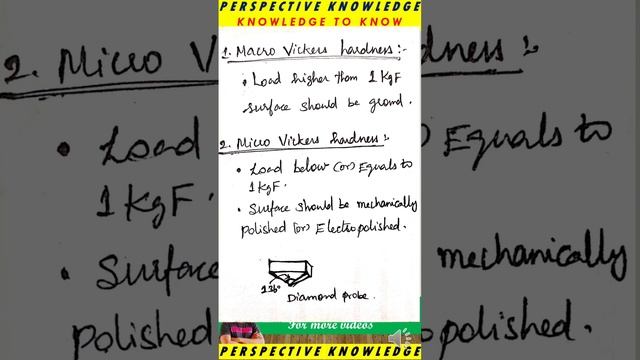 PERSPECTIVE KNOWLEDGE
KNOWLEDGE TO KNOW
1. Macro Vickers hardness:-
• Load higher than 1 KgF
surface should be ground.
2. Micro Vickers hardness:-
• Load below (or) Equals to
1 KgF.
• Surface should be mechanically
polished (or) Electropolished.
136°
Diamond probe.
For more videos
PERSPECTIVE KNOWLEDGE
2. Micro V
dness:-
• Load
Equals to
1 KgF.
• Surface
mechanically
polished
opolished.